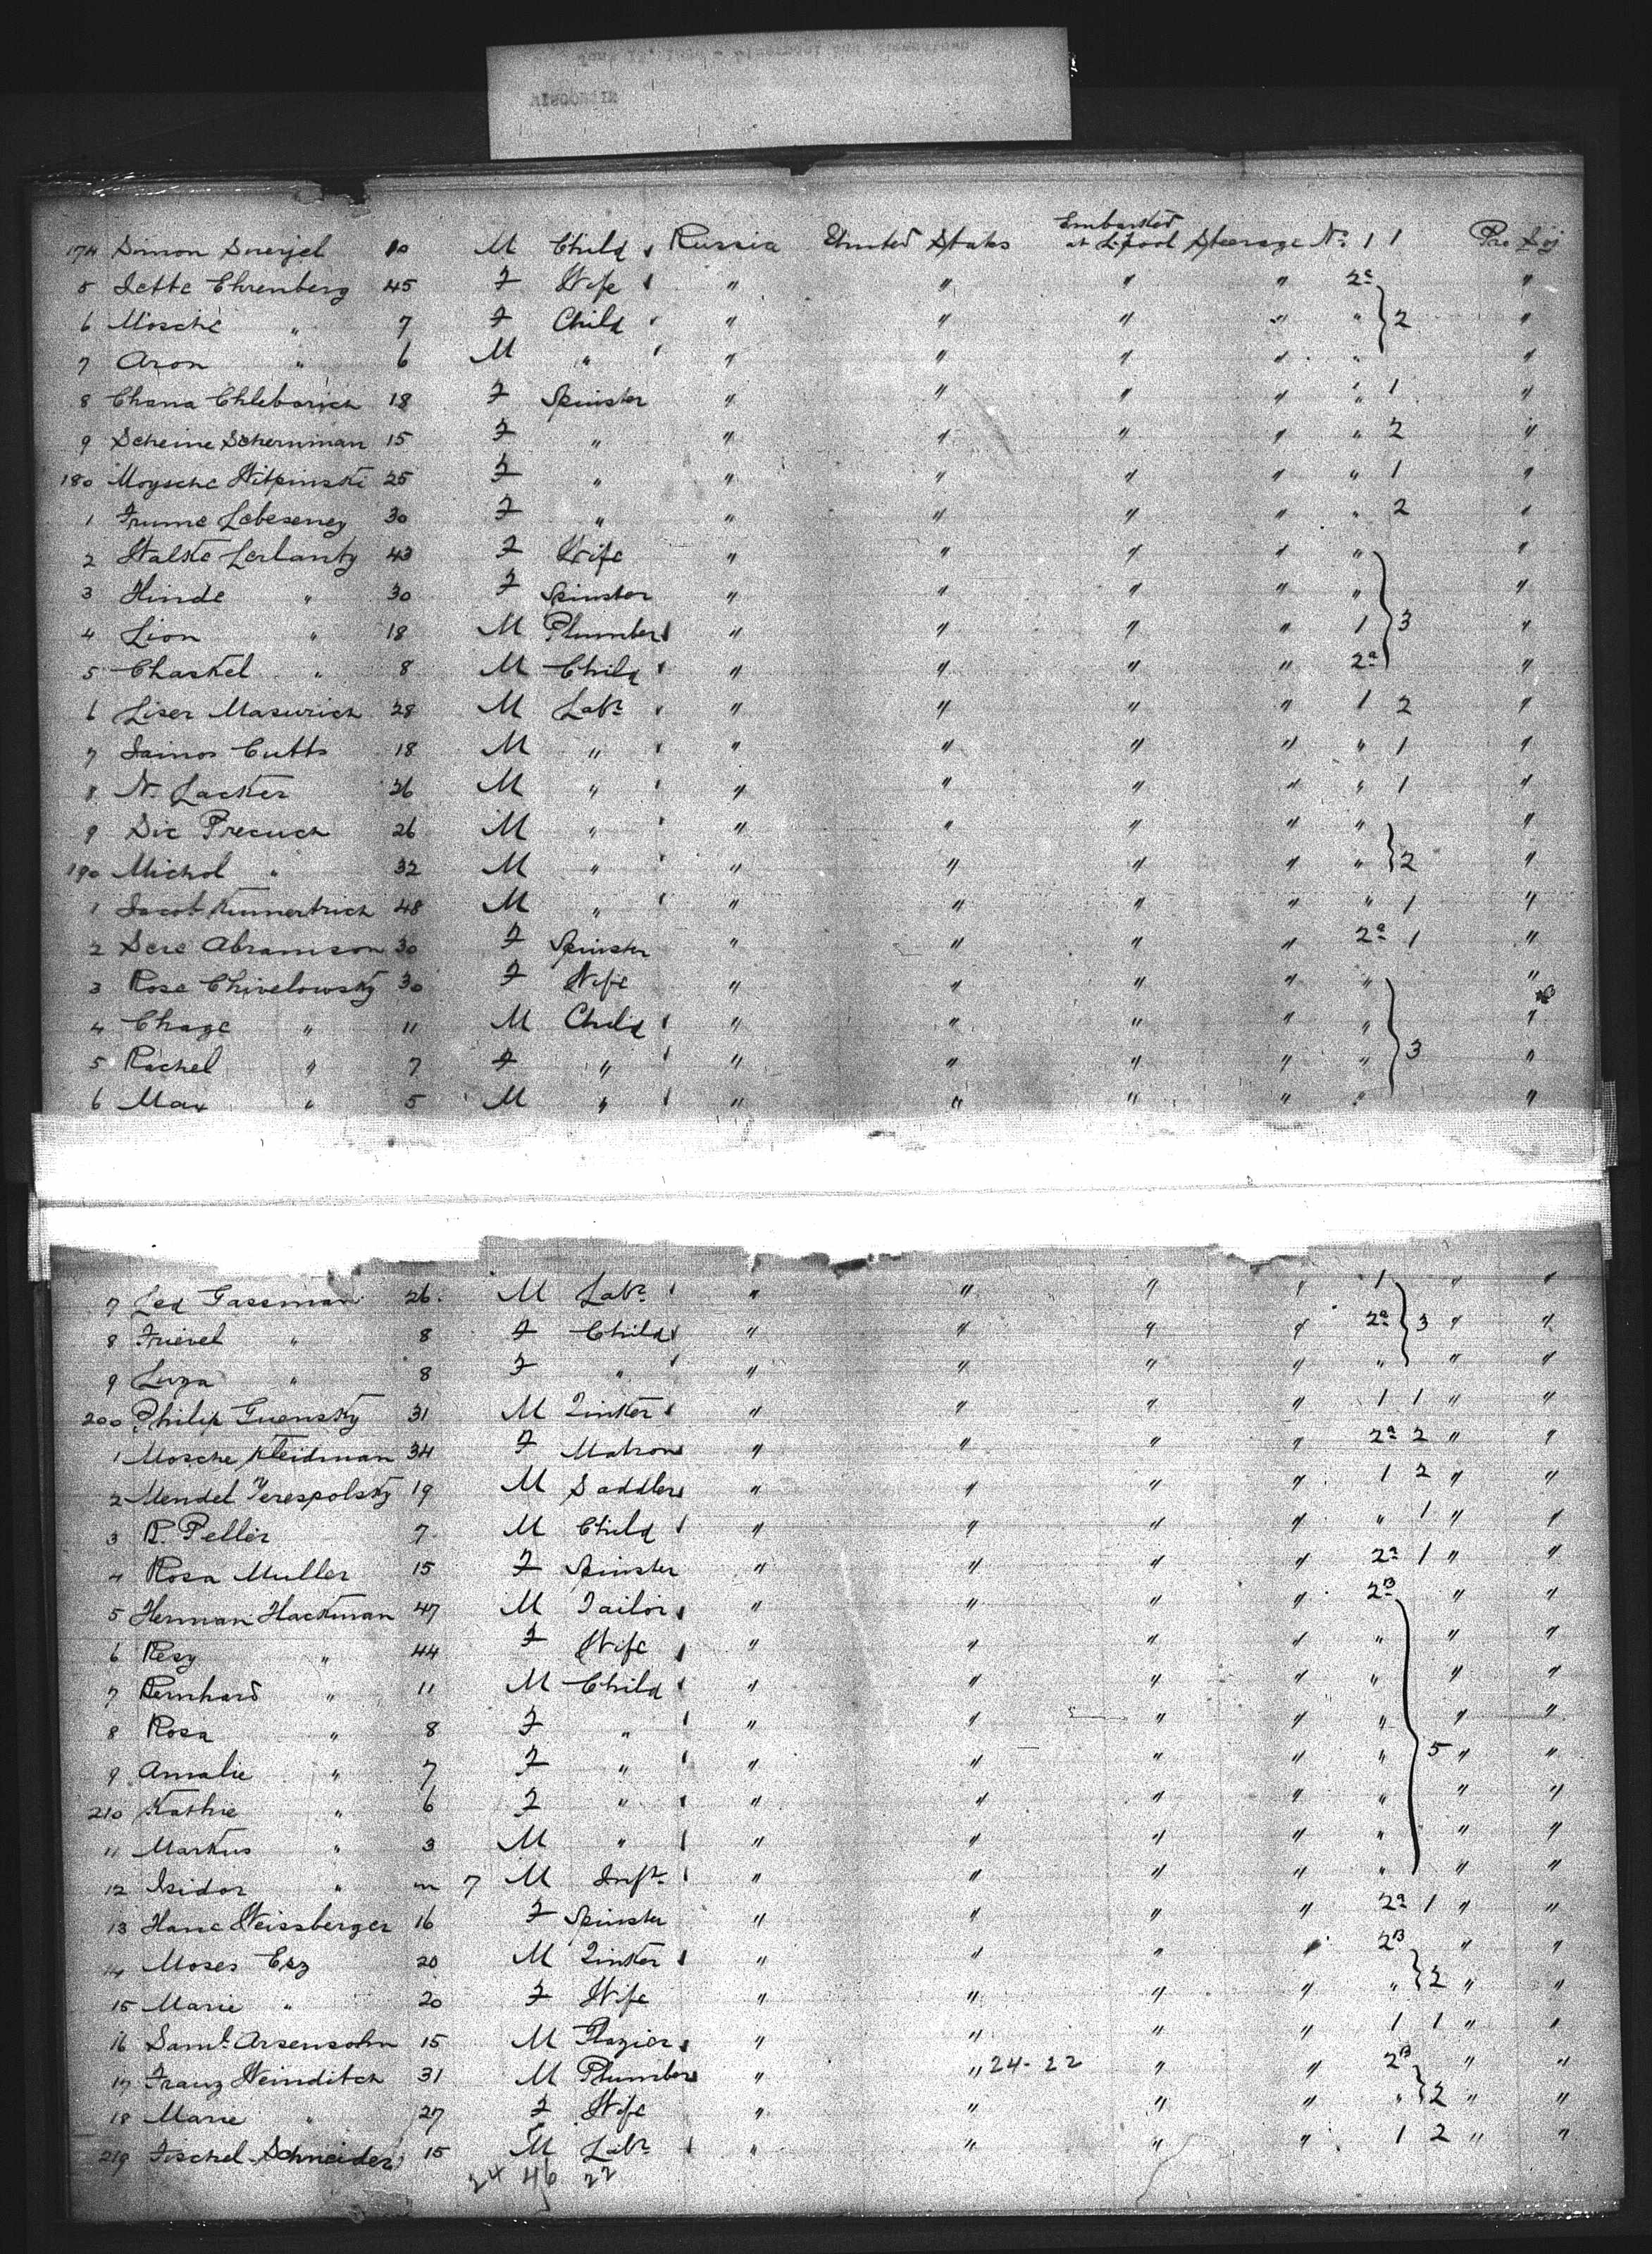 Embarked
174 Simon Snerjel 10 M Child Russia United States at L.pool Steerage No. 1 1 Pro Soj
5 Jette Ehrenberg 45 F Wife " " " " 2a "
6 Mosche " 7 F Child " " " " " 2 "
7 Aron " 6 M " " " " " " "
8 Chana Chleborich 18 F Spinster " " " " " 1 "
9 Scheine Scherniman 15 F " " " " " " 2 "
180 Moysche Witpinski 25 F " " " " " " 1 "
1 Frume Lebeseney 30 F " " " " " " 2 "
2 Walke Lerlantz 43 F Wife " " " " " "
3 Hinde " 30 F Spinster " " " " " "
4 Lion " 18 M Plumber " " " " 1 3 "
5 Chaskel " 8 M Child " " " " 2a "
6 Liser Masurich 28 M Labr " " " " 1 2 "
7 Jainos Cutts 18 M " " " " " " 1 "
8 N. Lacker 26 M " " " " " " 1 "
9 Sic Precuch 26 M " " " " " " "
190 Michol " 32 M " " " " " " 2 "
1 Jacob Kumertrich 48 M " " " " " " 1 "
2 Sere Abramson 30 F Spinster " " " " 2a 1 "
3 Rose Chivelowsky 30 F Wife " " " " " "
4 Chage " 11 M Child " " " " " "
5 Rachel " 7 F " " " " " " 3 "
6 Max " 5 M " " " " " " "
7 Led Gassman 26 M Labr " " " " 1 " "
8 Frievel " 8 F Child " " " " 2a 3 " "
9 Luza " 8 F " " " " " " " "
200 Philip Guensky 31 M Tinker " " " " 1 1 " "
1 Mosche Kleidman 34 F Matron " " " " 2a 2 " "
2 Mendel Terespolsky 19 M Saddler " " " " 1 2 " "
3 R. Peller 7 M Child " " " " " 1 " "
4 Rosa Muller 15 F Spinster " " " " 2a 1 " "
5 Herman Hackman 47 M Tailor " " " " 2B " "
6 Resy " 44 F Wife " " " " " " "
7 Bernhard " 11 M Child " " " " " " "
8 Rosa " 8 F " " " " " " " "
9 Amalie " 7 F " " " " " " 5 " "
210 Kathie " 6 F " " " " " " " "
11 Markus " 3 M " " " " " " " "
12 Isidor " m 7 M Inft " " " " " " "
13 Hane Weissberger 16 F Spinster " " " " 2a 1 " "
14 Moses Erz 20 M Tinker " " " " 2B " "
15 Marie " 20 F Wife " " " " " 2 " "
16 Saml. Arsensohn 15 M Glazier " " " " 1 1 " "
17 Franz Weinditch 31 M Plumber " " 24-22 " " 2B " "
18 Marie " 27 F Wife " " " " " 2 " "
219 Fischel Schneider 15 M Labr " " " " 1 2 " "
24 46 22